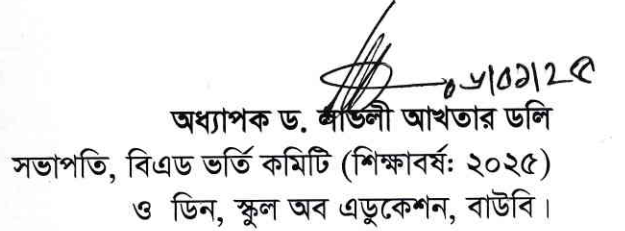 অধ্যাপক ড. আখতার ডলি
সভাপতি, বিএড ভর্তি কমিটি (শিক্ষাবর্ষঃ ২০২৫)
ও ডিন, স্কুল অব এডুকেশন, বাউবি।